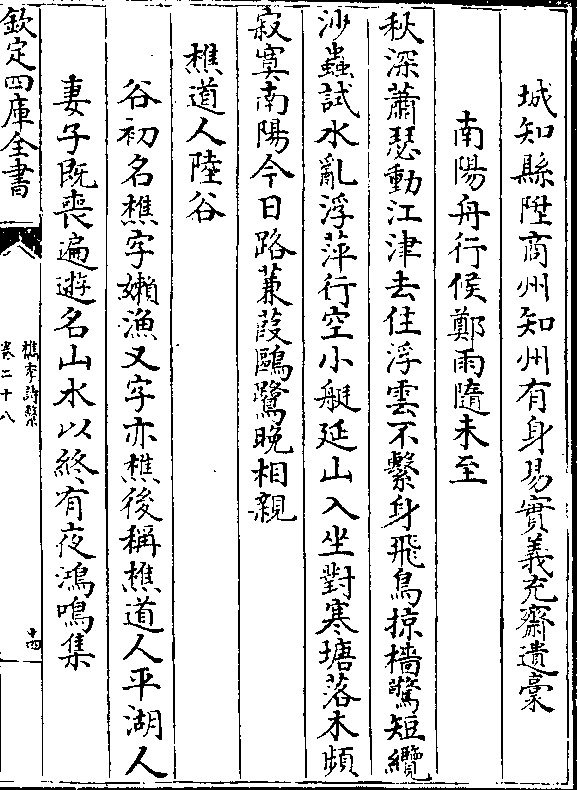 城知縣陞商州知州有身易實義充齋遺稾
南陽舟行候鄭雨隨未至
秋深蕭瑟動江津去住浮雲不繫身飛鳥掠檣驚短纜
沙蟲試水亂浮萍行空小艇延山入坐對寒塘落木頻
寂寞南陽今日路蒹葭鷗鷺晚相親
樵道人陸谷
谷初名樵字嬾漁又字亦樵後稱樵道人平湖人
妻子既喪遍遊名山水以終有夜鴻鳴集
欽定四庫全書
檇李詩繫
卷二十八
十四